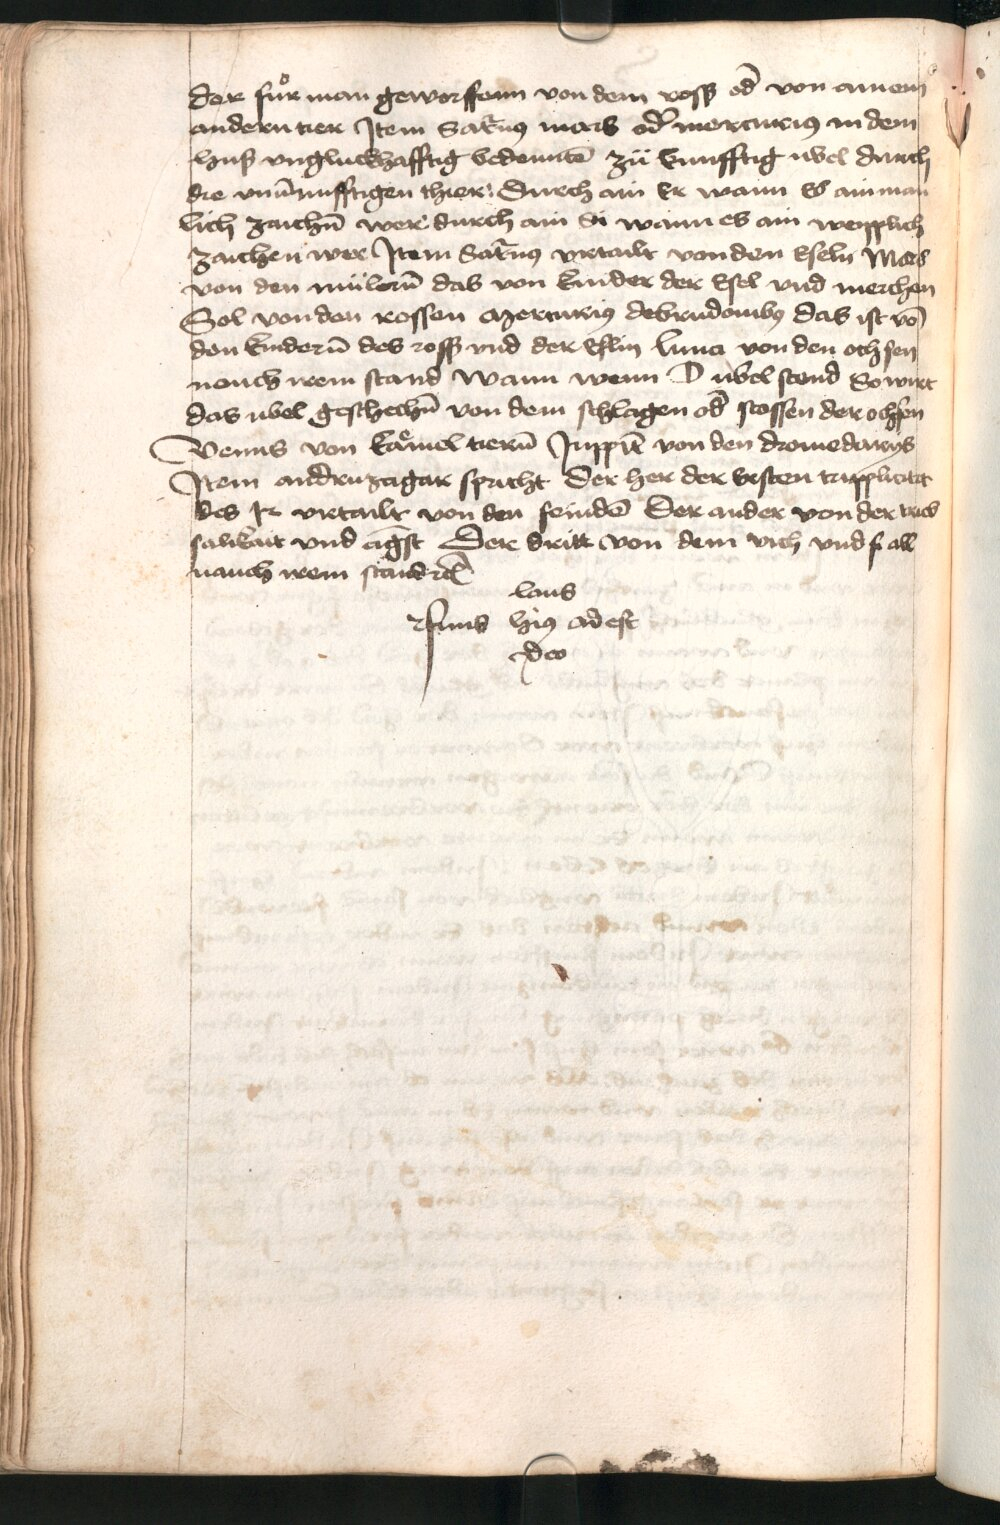 der fuͦr man geworffenn von dem ross od̄ von ainem
andern tier Item Sat̄nꝰ mars od̄ mercuriꝰ in dem
huß vngluckhafftig bedeuttē zü kunfftig ubel durch
die vnūnunfftigen thier: Durch ain Er wann es ain man
lich zaichn̄ wer durch ain Si wann es ain weyplich
zaichen wer Item Sat̄nꝰ vrtailt von den Eseln Mars
von den mülern̄ das von kinder der Esel vnd merchen
Sol von den rossen Mercuriꝰ das ist vō
den kindern̄ des ross vnd der Eslin luna von den ochsen
nauch irem stand Wann wenn D ubel stend So wirt
das ubel geschechn̄ von dem schlagen od̄ stossen der ochsen
Venus von kämel tiern̄ Juppit̄ von den dromedarys
Item andruzagar spricht Der her der Ersten tripplicitet
des vrtailt von den feindē Der ander von der trieb
salikait vnd āgst Der dritt von dem vich vnd all
nauch irem stand rc̄
laus
finis hiꝰ adest
deo